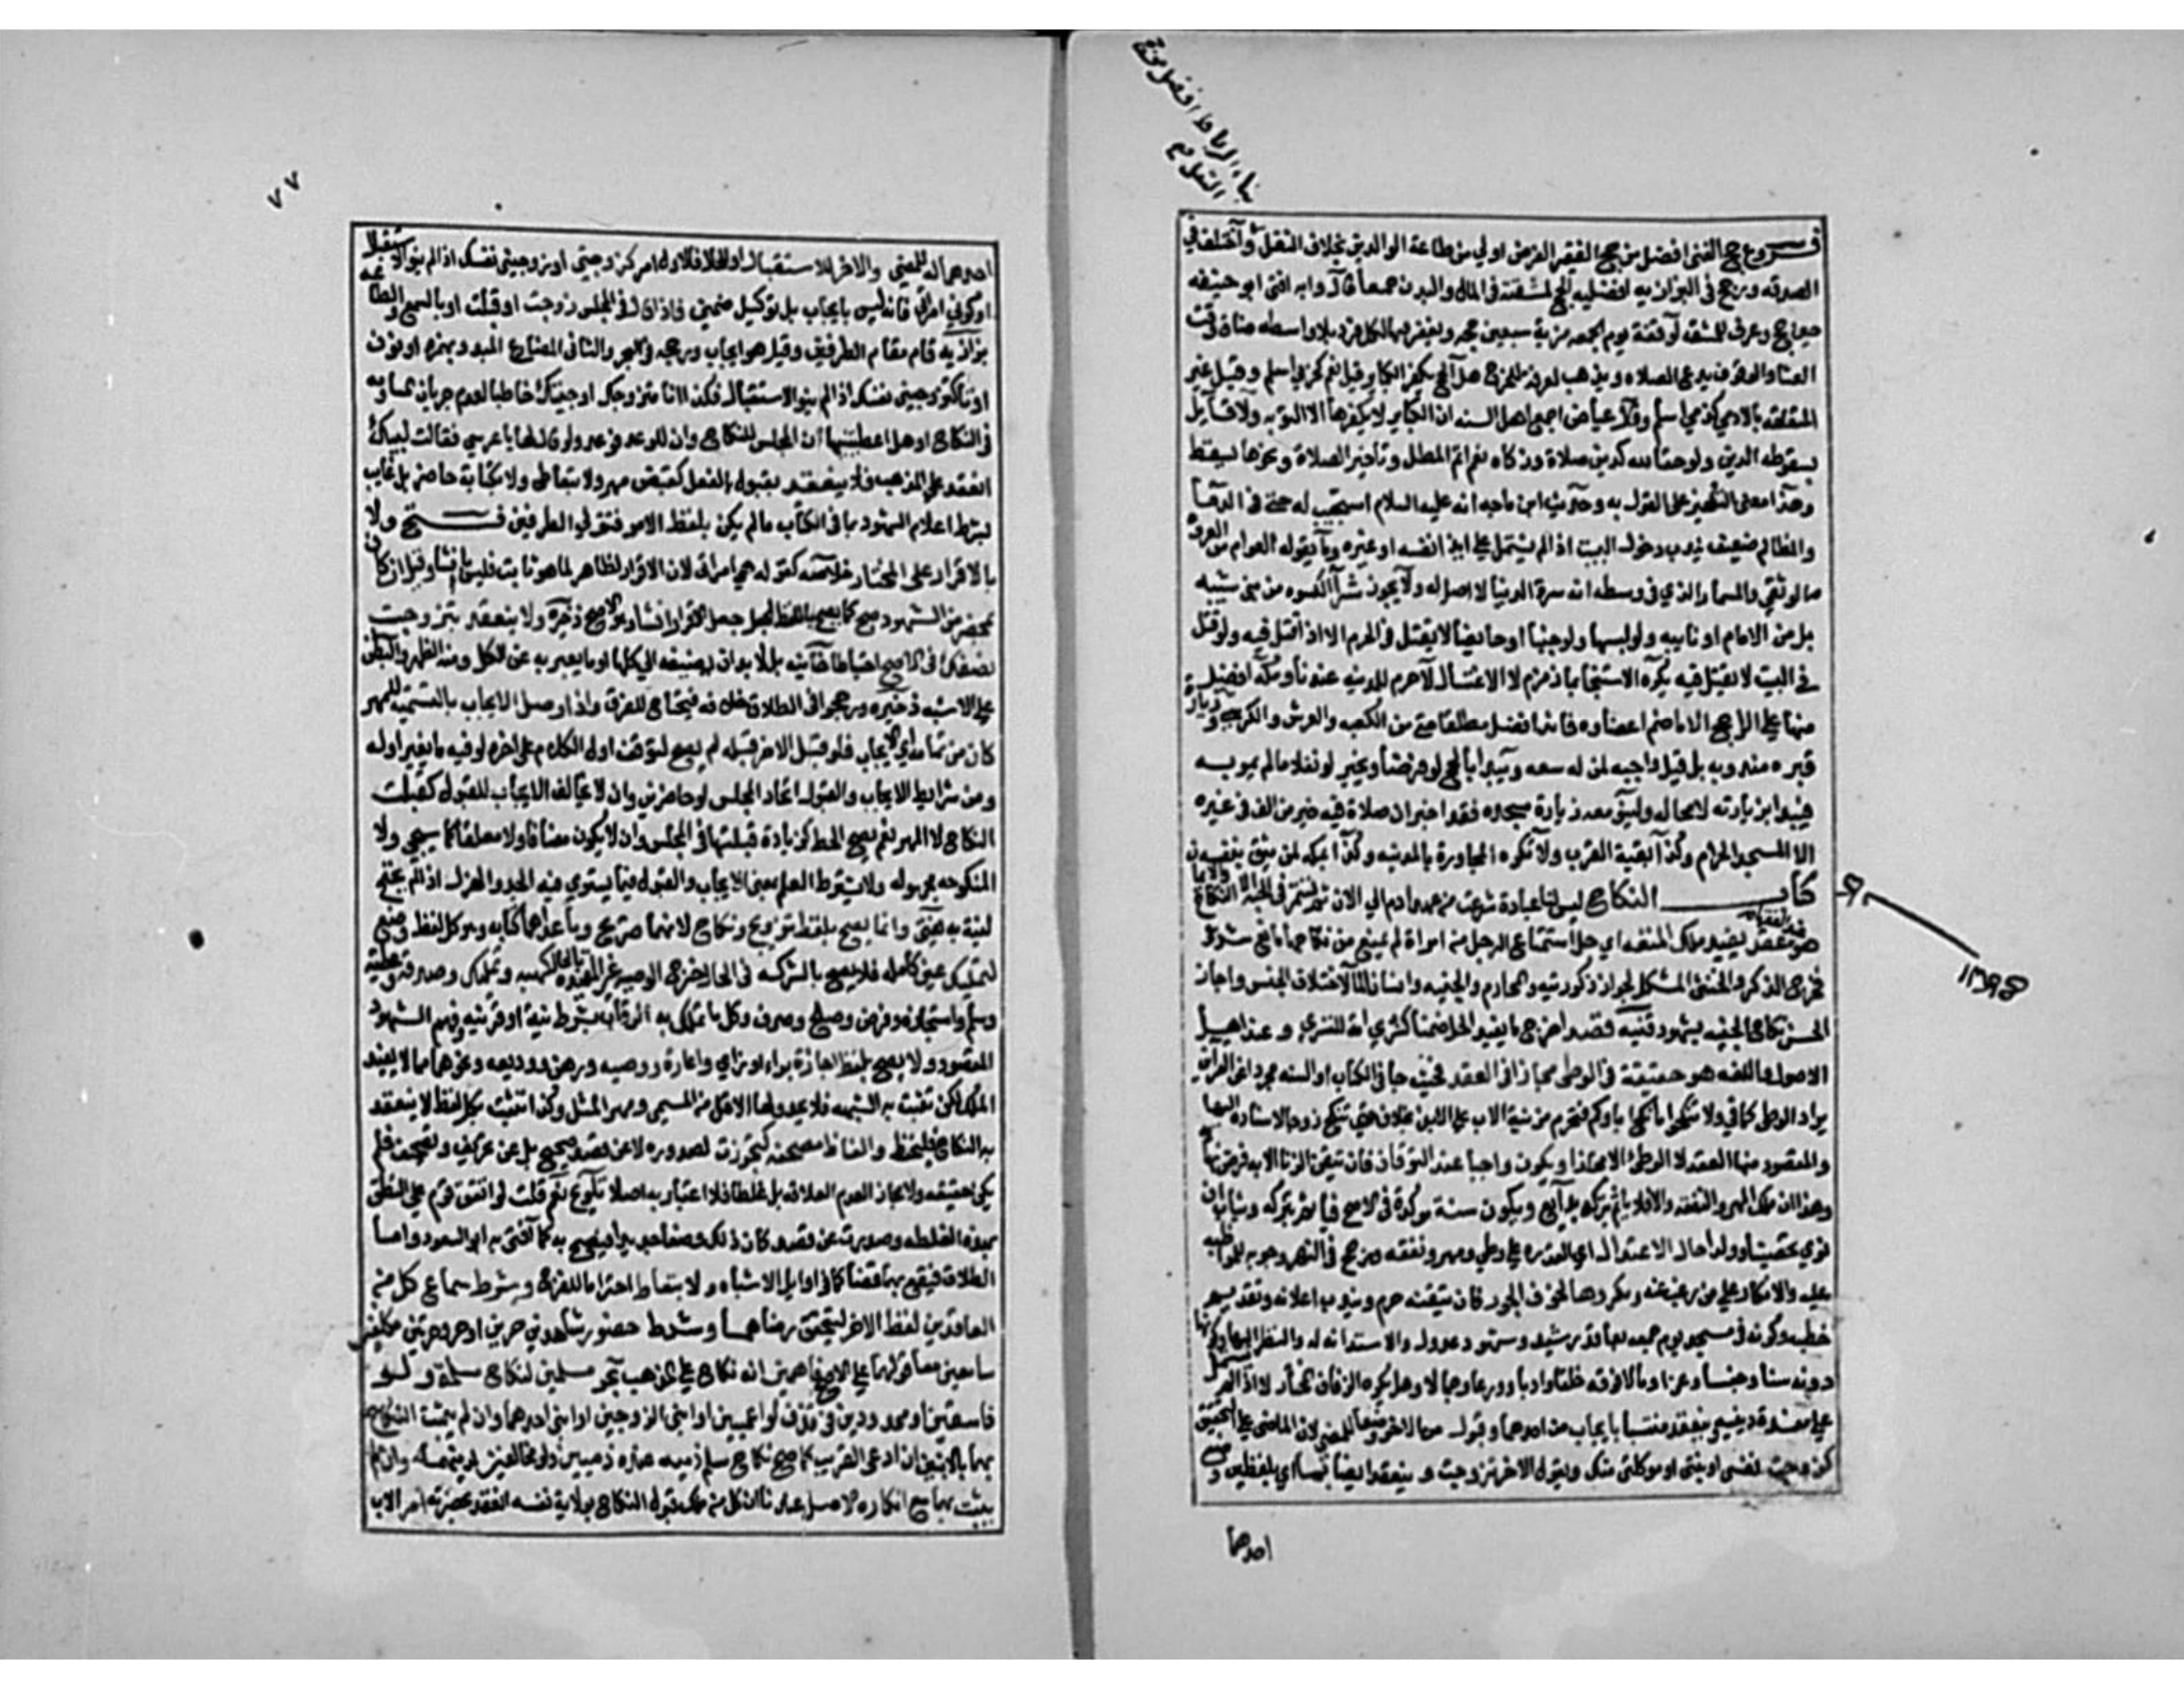 بناء الرباط افضل منه
فروع حج الغني افضل من حج الفقير الفرض اولي من طاعة الوالدين بخلاف النفل واختلف في
الصدقه ورجح في البزازيه افضليه الحج لمشقته في المال والبدن جميعا قال وبه افتى ابو حنيفه
حين حج وعرف المشقه لوقفة يوم الجمعه مزية سبعين حجه ويغفر فيها لكل فرد بلا واسطه ضاق وقت
العشا والوقوف يدع الصلاه ويذهب لعرفه للحرج هل الحج يكفر الكباير قيل نعم كحربي اسلم وقيل غير
المتعلقه بالادمي كذمي اسلم وقال عياض اجمع اهل السنه ان الكباير لا يكفرها الا التوبه ولا قايل
بسقوط الدين ولو حقا لله كدين صلاة وزكاه نعم اثم المطل وتاخير الصلاة ونحوها يسقط
وهذا معنى التكفير على القول به وحديث ابن ماجه انه عليه السلام استجيب له حتى في الدما
والمظالم ضعيف يندب دخول البيت اذا لم يشتمل على ايذا نفسه او غيره وما يقوله العوام من العروة
الوثقي والمسمار الذي في وسطه انه سرة الدنيا لا اصل له ولا يجوز شرا الكسوه من بني شيبه
بل من الامام او نايبه وله لبسها ولو جنبا او حايضا لا يقتل في الحرم الا اذا قتل فيه ولو قتل
في البيت لا يقتل فيه يكره الاستنجا بماء زمزم لا الاغتسال لا حرم للمدينه عندنا ومكة افضل
منها على الراجح الا ما ضم اعضاوه فانه افضل مطلقا حتى من الكعبه والعرش والكرسي وزيارة
قبره مندوبه بل قيل واجبه لمن له سعه ويبدا بالحج لو فرضا ويخير لو نفلا ما لم يمر به
فيبدا بزيارته لا محاله ولينو معه زيارة مسجده فقد اخبر ان صلاة فيه خير من الف في غيره
الا المسجد الحرام وكذا بقية القرب ولا تكره المجاورة بالمدينه وكذا بمكه لمن يثق بنفسه
كتاب النكاح ليس لنا عبادة شرعت من عهد ادم الي الان ثم تستمر في الجنة الا النكاح والايمان
هو عقد يفيد ملك المتعه اي حل استمتاع الرجل من امراة لم يمنع من نكاحها مانع شرعي
فخرج الذكر والخنثى المشكل لجواز ذكورته والمحارم والجنيه وانسان الماء لاختلاف الجنس واجاز
الحسن نكاح الجنيه بشهود قنيه قصدا خرج ما يفيد الحل ضمنا كشري امة للتسري وعند اهل
الاصول واللغه هو حقيقة في الوطى مجاز في العقد فحيث جا في الكتاب او السنه مجردا عن القراين
يراد الوطى كما في ولا تنكحوا ما نكح اباوكم فتحرم مزنية الاب على الابن بخلاف حتى تنكح زوجا لاسناده اليها
والمتصور منها العقد لا الوطئ الا مجازا ويكون واجبا عند التوقان فان تيقن الزنا الا به فرض نهايه
وهذا ان ملك المهر والنفقه والا فلا ياثم بتركه بدايع ويكون سنة موكدة في الاصح فياثم بتركه ويثاب ان
نوي تحصينا وولدا حال الاعتدال اي القدره علي وطي ومهر ونفقه ورجح في النهر وجوبه للمواظبه
عليه والانكار علي من رغب عنه ومكروها لخوف الجور فان تيقنه حرم ويندب اعلانه وتقديم
خطبه وكونه في مسجد يوم جمعه بعاقد رشيد وشهود عدول والاستدانه له والنظر اليها وكونها
دونه سنا وحسبا وعزا ومالا وفوقه خلقا وادبا وورعا وجمالا وهل يكره الزفاف المختار لا اذا لم يشتمل
علي مفسدة دينيه وينعقد ملتبسا بايجاب من احدهما وقبول من الاخر وضعا للمضي لان الماضي ادل علي التحقيق
كزوجت نفسي او بنتي او موكلتي منك ويقول الاخر تزوجت وينعقد ايضا بما اي بلفظين وضع
احدهما
٧٧
احدهما له للمضي والاخر للاستقبال او للحال فالاول الامر كزوجني او زوجيني نفسك اذا لم ينو الاستقبال
او كوني امراتي فانه ليس بايجاب بل توكيل ضمني فاذا قال في المجلس زوجت او قبلت او بالسمع والطاعه
بزازيه قام مقام الطرفين وقيل هو ايجاب ورجحه في البحر والثاني المضارع المبدو بهمزه او نون
او تا كتزوجيني نفسك اذا لم ينو الاستقبال وكذا انا متزوجك او جيتك خاطبا لعدم جريان المساومه
في النكاح او هل اعطيتنيها ان المجلس للنكاح وان للوعد فوعد ولو قال لها يا عرسي فقالت لبيك
انعقد على المذهب فلا ينعقد بقبول بالفعل كقبض مهر ولا بتعاطي ولا بكتابة حاضر بل غايب
بشرط اعلام الشهود بما في الكتاب ما لم يكن بلفظ الامر فيتولي الطرفين فتح ولا
بالاقرار على المختار خلاصه كقوله هي امراتي لان الاقرار اظهار لما هو ثابت فليس بانشا وقيل ان كان
بمحضر من الشهود صح كما يصح بلفظ الجعل وجعل الاقرار انشاء وهو الاصح ذخيرة ولا ينعقد بتزوجت
نصفك في الاصح احتياطا خانيه بل لا بد ان يضيفه الي كلها او ما يعبر به عن الكل ومنه الظهر والبطن
على الاشبه ذخيره ورجحوا في الطلاق خلافه فيحتاج للفرق واذا وصل الايجاب بالتسميه للمهر
كان من تمامه اي الايجاب فلو قبل الاخر قبله لم يصح لتوقف اول الكلام على اخره لو فيه ما يغير اوله
ومن شرايط الايجاب والقبول اتحاد المجلس لو حاضرين وان لا يخالف الايجاب للقبول كقبلت
النكاح لا المهر نعم يصح الحط كزيادة قبلتها في المجلس وان لا يكون مضافا ولا معلقا كما سيجي ولا
المنكوحه مجهوله ولا يشترط العلم بمعنى الايجاب والقبول فيما يستوي فيه الجد والهزل اذ لم يحتج
لنية به يفتى وانما يصح بلفظ تزويج ونكاح لانهما صريح وما عداهما كنايه هو كل لفظ وضع
لتمليك عين كامله فلا يصح بالشركه في الحال خرج الوصيه غير المقيده بالحال كهبه وتمليك وصدقة وعطيه
وسلم واستيجار وقرض وصلح وصرف وكل ما تملك به الرقاب بشرط نية او قرينه وفهم الشهود
المقصود ولا يصح بلفظ اجارة براء او بزاي واعارة ووصيه ورهن ووديعه ونحوها مما لا يفيد
الملك لكن تثبت به الشبهه فلا يحد ولها الاقل من المسمى ومهر المثل وكذا تثبت بكل لفظ لا ينعقد
به النكاح فليحفظ والفاظ مصحفه كتجوزت لصدوره لا عن قصد صحيح بل عن تحريف وتصحيف فلم
يكن حقيقه ولا مجاز العدم العلاقه بل غلطا فلا اعتبار به اصلا تلويح نعم قلت لو اتفق قوم على النطق
بهذه الغلطه وصدرت عن قصد كان ذلك وضعا جديدا فيصح به كما افتى به ابو السعود واما
الطلاق فيقع بها قضا كما في اوايل الاشباه ولا بتعاط احتراما للفروج وشرط سماع كل من
العاقدين لفظ الاخر ليتحقق رضاهما وشرط حضور شاهدين حرين او حر وحرتين مكلفين
سامعين معا قولهما على الاصح فاهمين انه نكاح علي المذهب بحر مسلمين لنكاح مسلمة ولو
فاسقين او محدودين في قذف او اعميين او ابني الزوجين او ابني احدهما وان لم يثبت النكاح
بهما بالابنين ان ادعى القريب كما صح نكاح مسلم ذميه عند ذميين ولو مخالفين لدينها وان لم
يثبت بهما مع انكاره الاصل عندنا ان كل من ملك قبول النكاح بولاية نفسه انعقد بحضرته امر الاب